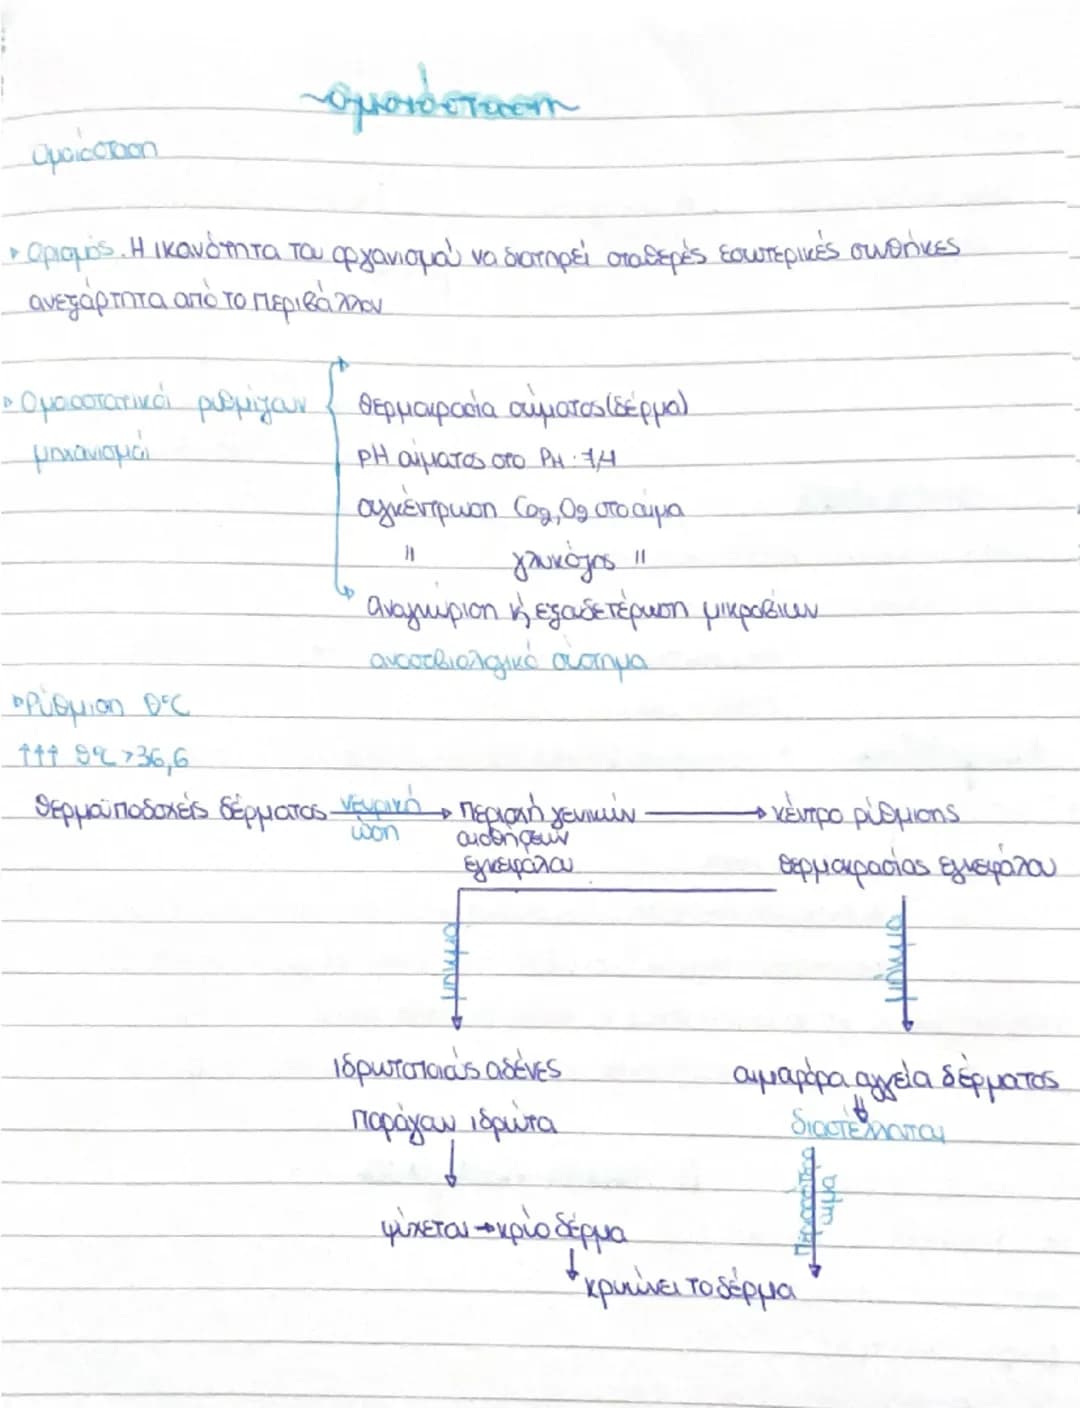 ~ομοιόσταση~
Ομοιόσταση
▸ Ορισμός. Η ικανότητα του οργανισμού να διατηρεί σταθερές εσωτερικές συνθήκες
ανεξάρτητα από το περιβάλλον
▸ Ομοιοστατικοί ρυθμίζουν
μηχανισμοί
θερμοκρασία σώματος (δέρμα)
pH αίματος στο PH: 7,4
συγκέντρωση CO2, O2 στο αίμα
" γλυκόζης "
αναγνώριση κ' εξουδετέρωση μικροβίων
ανοσοβιολογικό σύστημα
▸ Ρύθμιση θ°C
↑↑↑ θ°C > 36,6
θερμοϋποδοχείς δέρματος νευρική → περιοχή γενικών → κέντρο ρύθμισης
ώση αισθήσεων
εγκεφάλου θερμοκρασίας εγκεφάλου
μήνυμα μήνυμα
ιδρωτοποιούς αδένες αιμοφόρα αγγεία δέρματος
παράγουν ιδρώτα διαστέλλονται
περισσότερο
αίμα
ψύχεται → κρύο δέρμα
κρυώνει το δέρμα